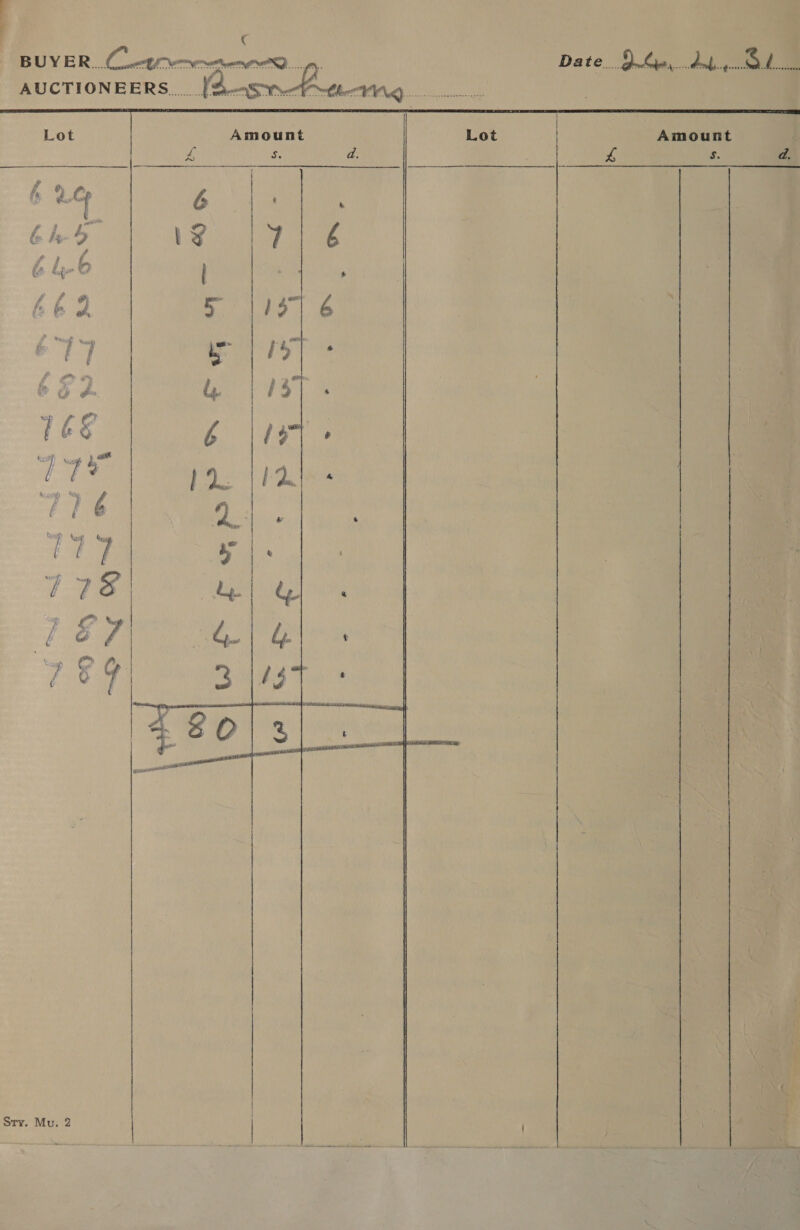 BUYER Date 24, 4,
AUCTIONEERS
Lot Amount Lot Amount
£ s. d. £ s. d.
629 6 . .
645 18 7 6
646 1 . .
662 5 15 6
677 5 15 .
682 4 15 .
768 6 15 .
775 12 12 .
776 2 . .
777 5 . .
778 4 4 .
787 4 4 .
789 3 15 .
£80 3 .
Sry. Mu. 2